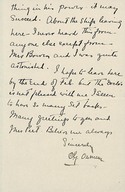 thing in his power. it may
Succeed. About the Ships leaving
here - I never heard this from
any one else except from
Mrs Bowen and I was quite
astonished.
I hope to leave here
by the End of Feb. but the Doctor
is not pleased with me I seem
to have so many Set backs.
Many greetings to you and
Mrs Peel Believe me always
Sincerely